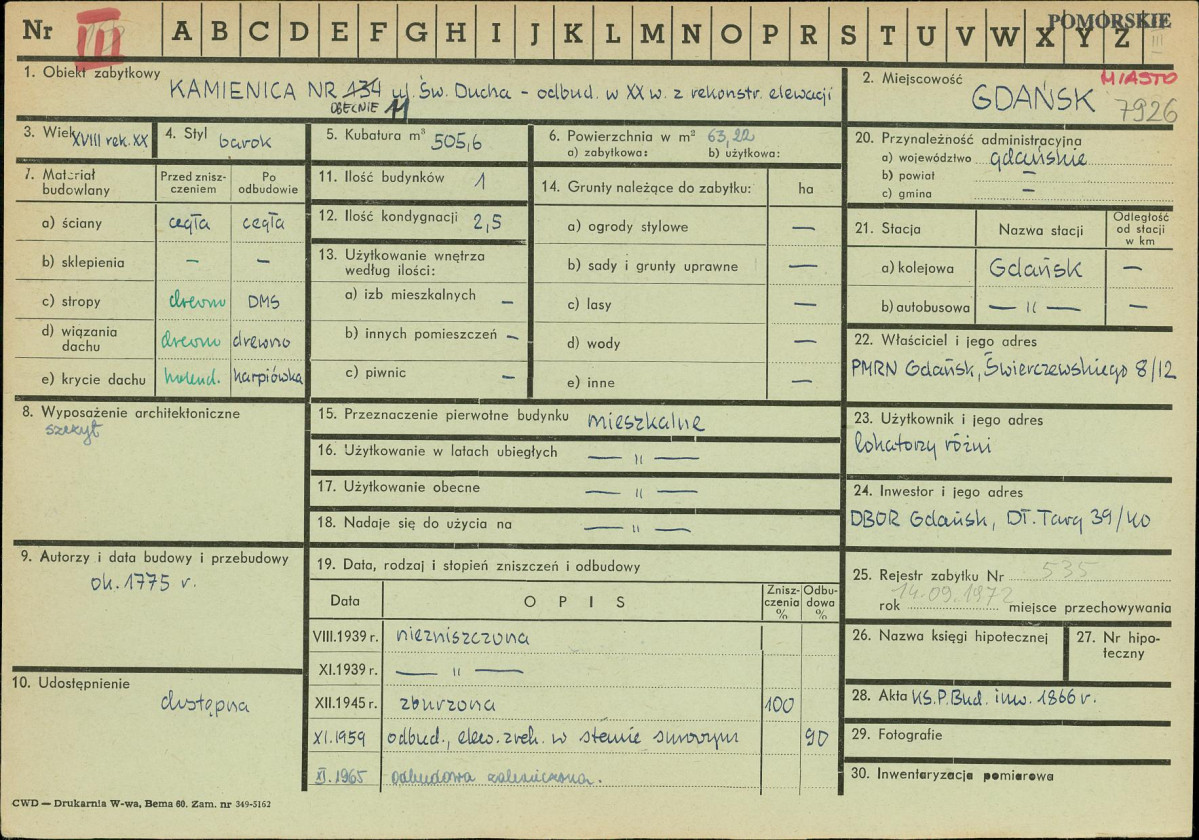 Nr III A B C D E F G H I J K L M N O P R S T U V W X Y Z
POMORSKIE
III
1. Obiekt zabytkowy
KAMIENICA NR 134 ul. Św. Ducha – odbud. w XX w. z rekonstr. elewacji
OBECNIE 11
2. Miejscowość
MIASTO
GDAŃSK 7926
3. Wiek XVIII rek. XX
4. Styl barok
5. Kubatura m³ 505,6
6. Powierzchnia w m² 63,22
a) zabytkowa: b) użytkowa:
7. Materiał budowlany
Przed znisz-
czeniem
Po
odbudowie
a) ściany cegła cegła
b) sklepienia – –
c) stropy drewno DMS
d) wiązania
dachu drewno drewno
e) krycie dachu holend. karpiówka
8. Wyposażenie architektoniczne
szczyt
9. Autorzy i data budowy i przebudowy
ok. 1775 r.
10. Udostępnienie
dostępna
11. Ilość budynków 1
12. Ilość kondygnacji 2,5
13. Użytkowanie wnętrza
według ilości:
a) izb mieszkalnych –
b) innych pomieszczeń –
c) piwnic –
14. Grunty należące do zabytku: ha
a) ogrody stylowe —
b) sady i grunty uprawne —
c) lasy —
d) wody —
e) inne —
15. Przeznaczenie pierwotne budynku mieszkalne
16. Użytkowanie w latach ubiegłych — „ —
17. Użytkowanie obecne — „ —
18. Nadaje się do użycia na — „ —
19. Data, rodzaj i stopień zniszczeń i odbudowy
Data OPIS
Znisz-
czenia
%
Odbu-
dowa
%
VIII.1939 r. niezniszczona
XI.1939 r. — „ —
XII.1945 r. zburzona 100
XI.1959 odbud., elew. zrek. w stanie surowym 90
XI.1965 odbudowa zakończona.
20. Przynależność administracyjna
a) województwo gdańskie
b) powiat –
c) gmina –
21. Stacja Nazwa stacji
Odległość
od stacji
w km
a) kolejowa Gdańsk —
b) autobusowa — „ — —
22. Właściciel i jego adres
PMRN Gdańsk, Świerczewskiego 8/12
23. Użytkownik i jego adres
lokatorzy różni
24. Inwestor i jego adres
DBOR Gdańsk, Dł. Targ 39/40
25. Rejestr zabytku Nr 535
rok 14.09.1972 miejsce przechowywania
26. Nazwa księgi hipotecznej
27. Nr hipo-
teczny
28. Akta KS.P.Bud. inw. 1866 r.
29. Fotografie
30. Inwentaryzacja pomiarowa
CWD — Drukarnia W-wa, Bema 60. Zam. nr 349-5162